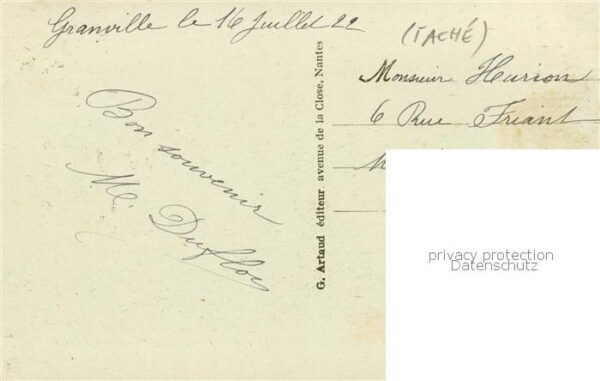 Granville le 16 Juillet 22
(TACHÉ)
Monsieur Hurion
6 Rue Friant
Bon souvenir
M. Duflos
G. Artaud éditeur avenue de la Close, Nantes
privacy protection
Datenschutz